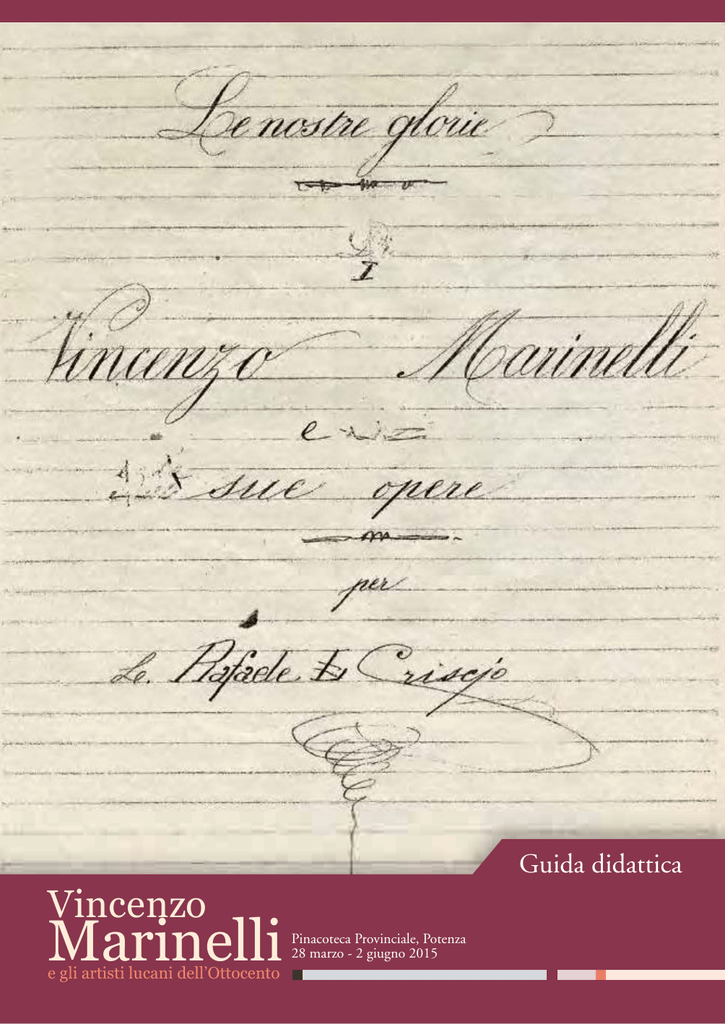 Le nostre glorie
I
Vincenzo Marinelli
e
sue opere
per
Le. Rafaele
Guida didattica
Vincenzo
Marinelli
e gli artisti lucani dell'Ottocento
Pinacoteca Provinciale, Potenza
28 marzo - 2 giugno 2015